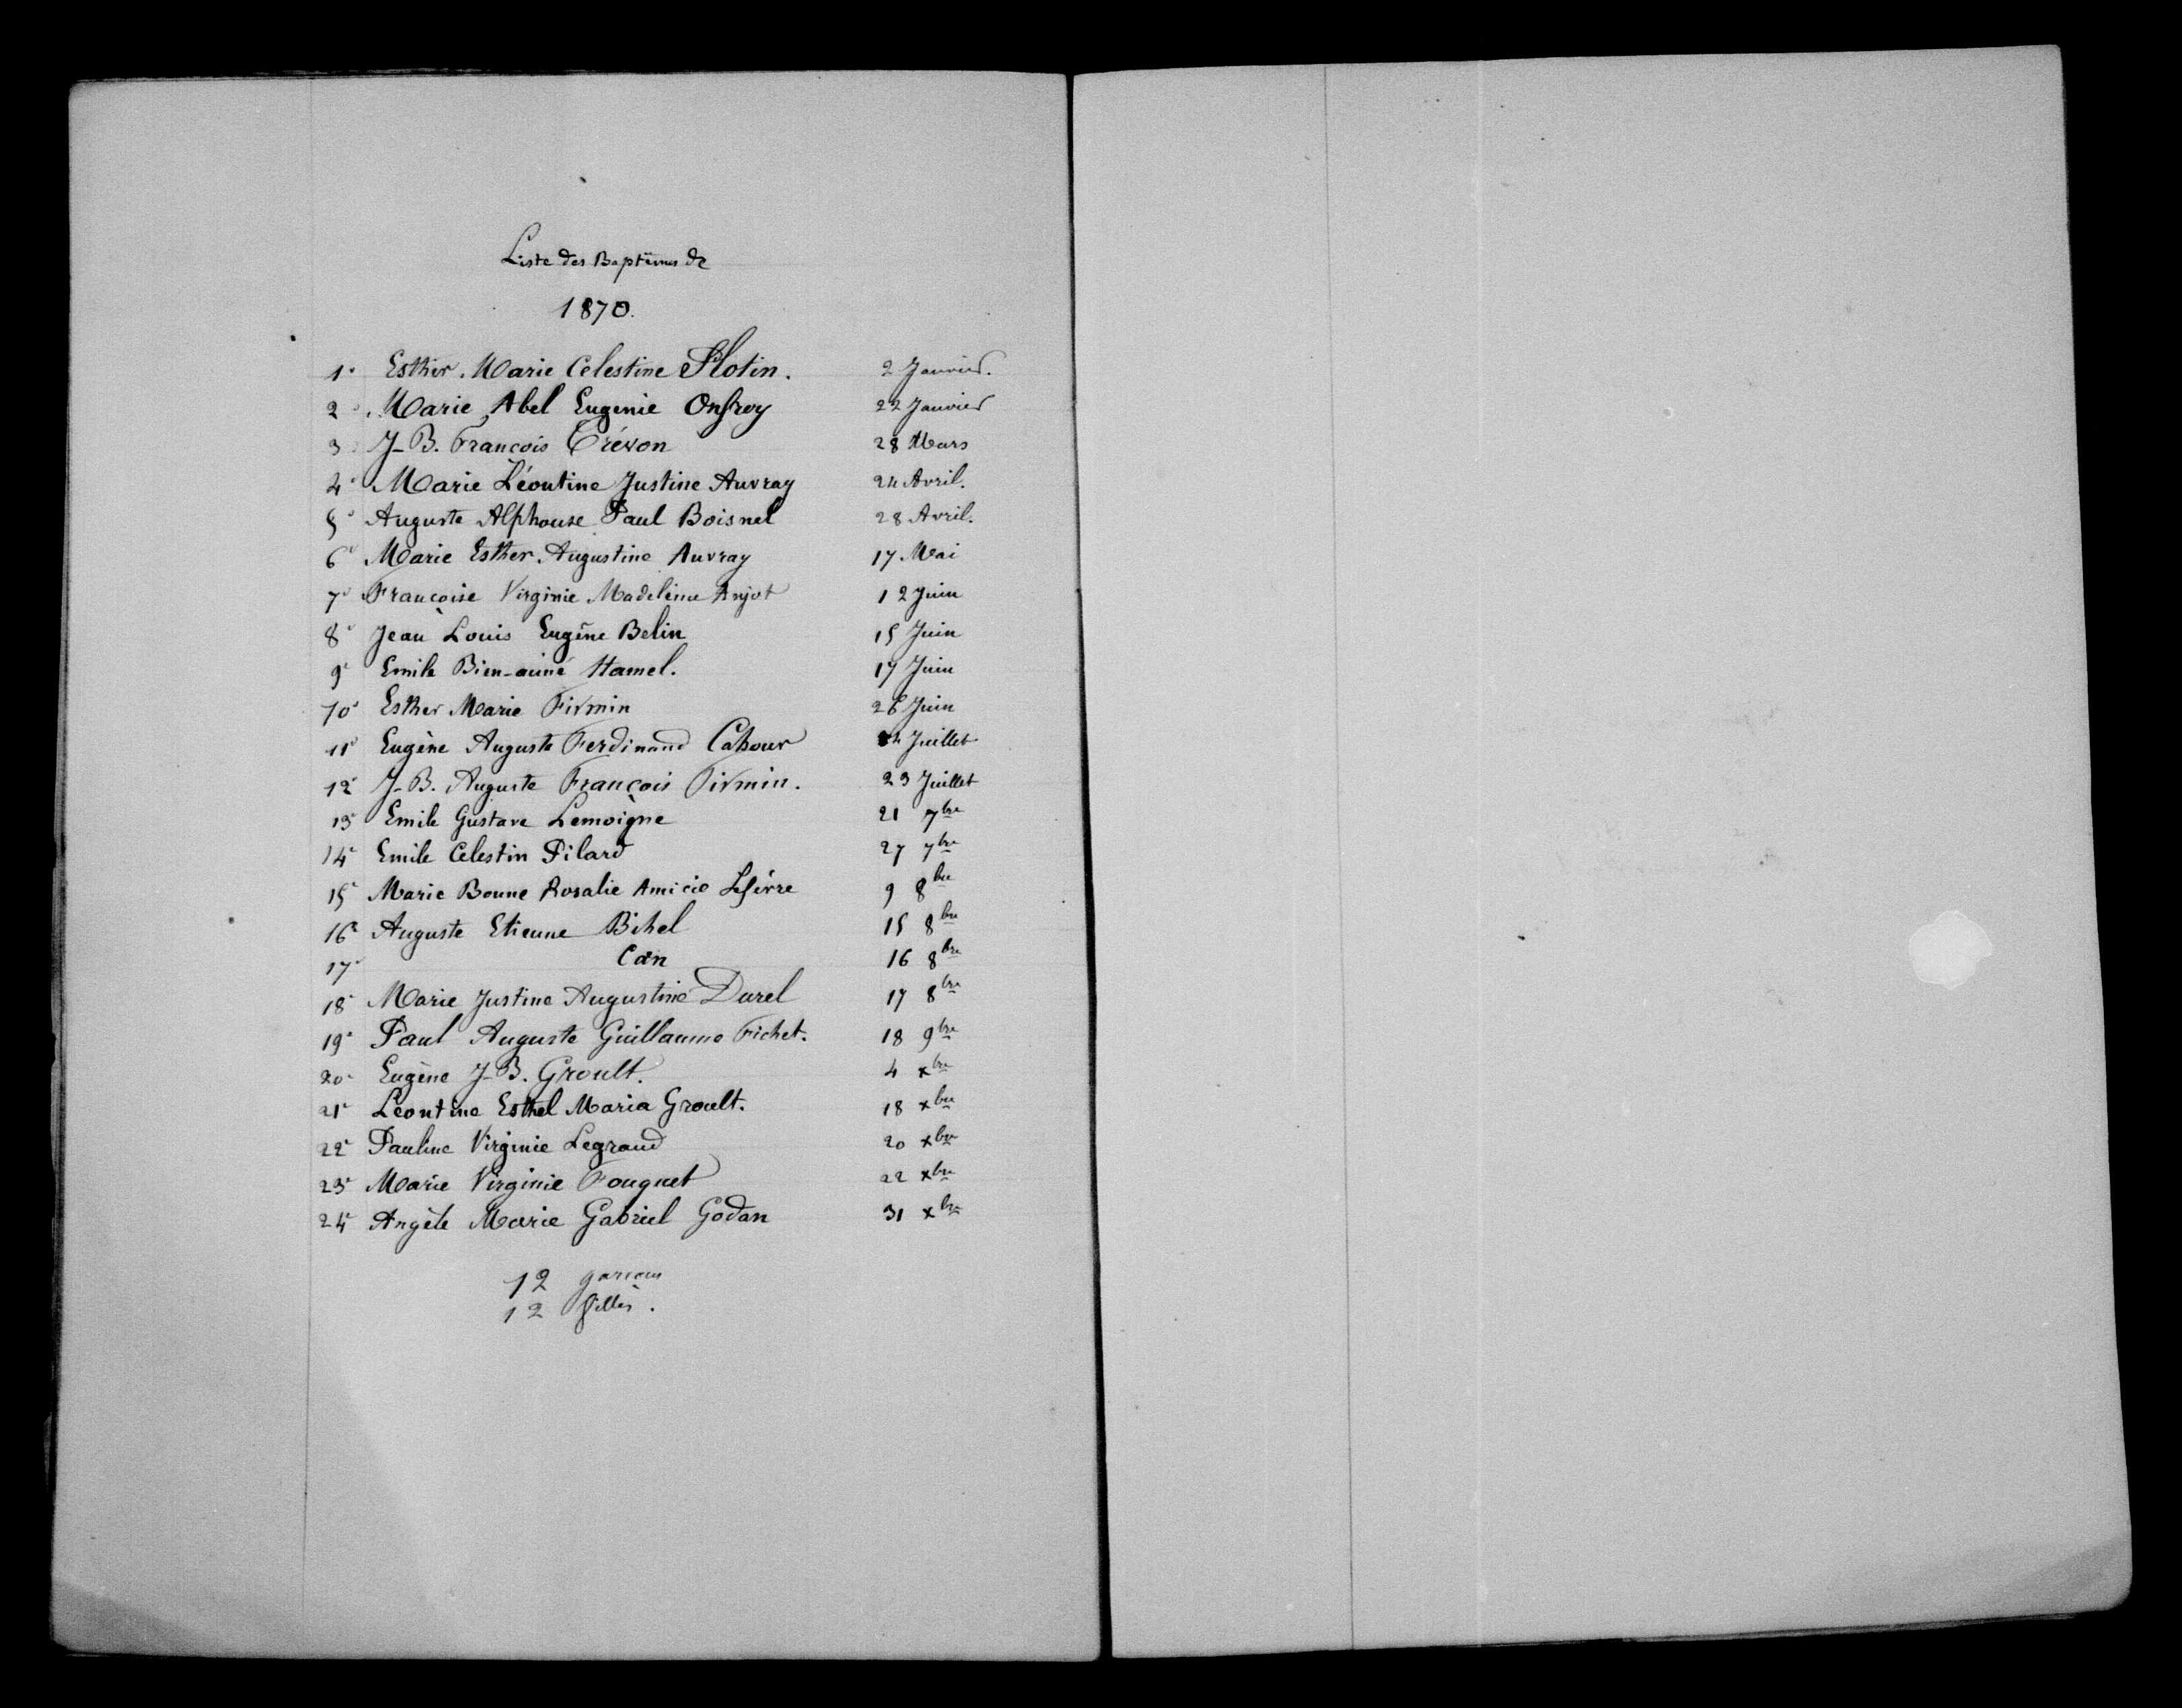 Liste des Baptêmes de
1870.
1° Esther Marie Celestine Flotin. 2 Janvier.
2° Marie Abel Eugenie Onfroy 22 Janvier
3° J-B. François Trévon 28 Mars
4° Marie Léontine Justine Auvray 24 Avril.
5° Auguste Alphonse Paul Boisnel 28 Avril.
6° Marie Esther Augustine Auvray 17 Mai
7° Françoise Virginie Madeleine Anjot 12 Juin
8° Jean Louis Eugène Belin 15 Juin
9° Emile Bien-aimé Hamel. 17 Juin
10° Esther Marie Firmin 26 Juin
11° Eugène Auguste Ferdinand Cahour Juillet
12° J-B. Auguste François Firmin. 23 Juillet
13° Emile Gustave Lemoigne 21 7bre
14° Emile Celestin Pilard 27 7bre
15° Marie Bonne Rosalie Amicie Lefèvre 9 8bre
16° Auguste Etienne Bihel 15 8bre
17° Can 16 8bre
18° Marie Justine Augustine Durel 17 8bre
19° Paul Auguste Guillaume Fichet. 18 9bre
20° Eugène J-B. Groult. 4 xbre
21° Léontine Esthel Maria Groult. 18 xbre
22° Pauline Virginie Legrand 20 xbre
23° Marie Virginie Fouquet 22 xbre
24° Angèle Marie Gabriel Godan 31 xbre
12 garçons
12 filles.